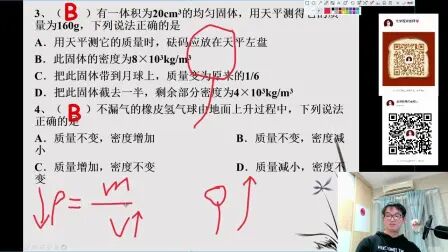 3、(B) 有一体积为20cm³的均匀固体，用天平测得它的质
量为160g，下列说法正确的是
A．用天平测它的质量时，砝码应放在天平左盘
B．此固体的密度为8×10³kg/m³
C．把此固体带到月球上，质量变为原来的1/6
D．把此固体截去一半，剩余部分密度为4×10³kg/m³
4、(B) 不漏气的橡皮氢气球由地面上升过程中，下列说法
正确的是
A．质量不变，密度增加 B．质量不变，密度减
小
C．质量增加，密度不变 D．质量减小，密度不
变
↓ρ=m/V↑